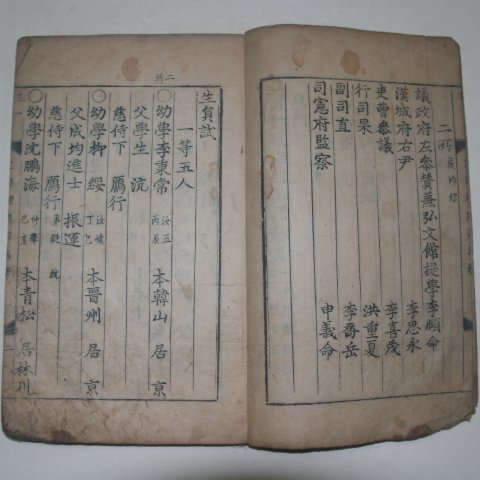 二所
議政府左參贊兼弘文館提學李頤命
漢城府右尹 李思永
吏曹參議 李喜茂
行司果 洪重夏
副司直 李喬岳
司憲府監察 申義命
生員試
一等五人
〇幼學李秉常 汝五 丙辰 本韓山 居京
父學生 沆
慈侍下 鴈行
〇幼學柳綏 丁巳 本晉州 居京
父成均進士 振運
慈侍下 鴈行
〇幼學沈鵬海 己亥 本青松 居林川